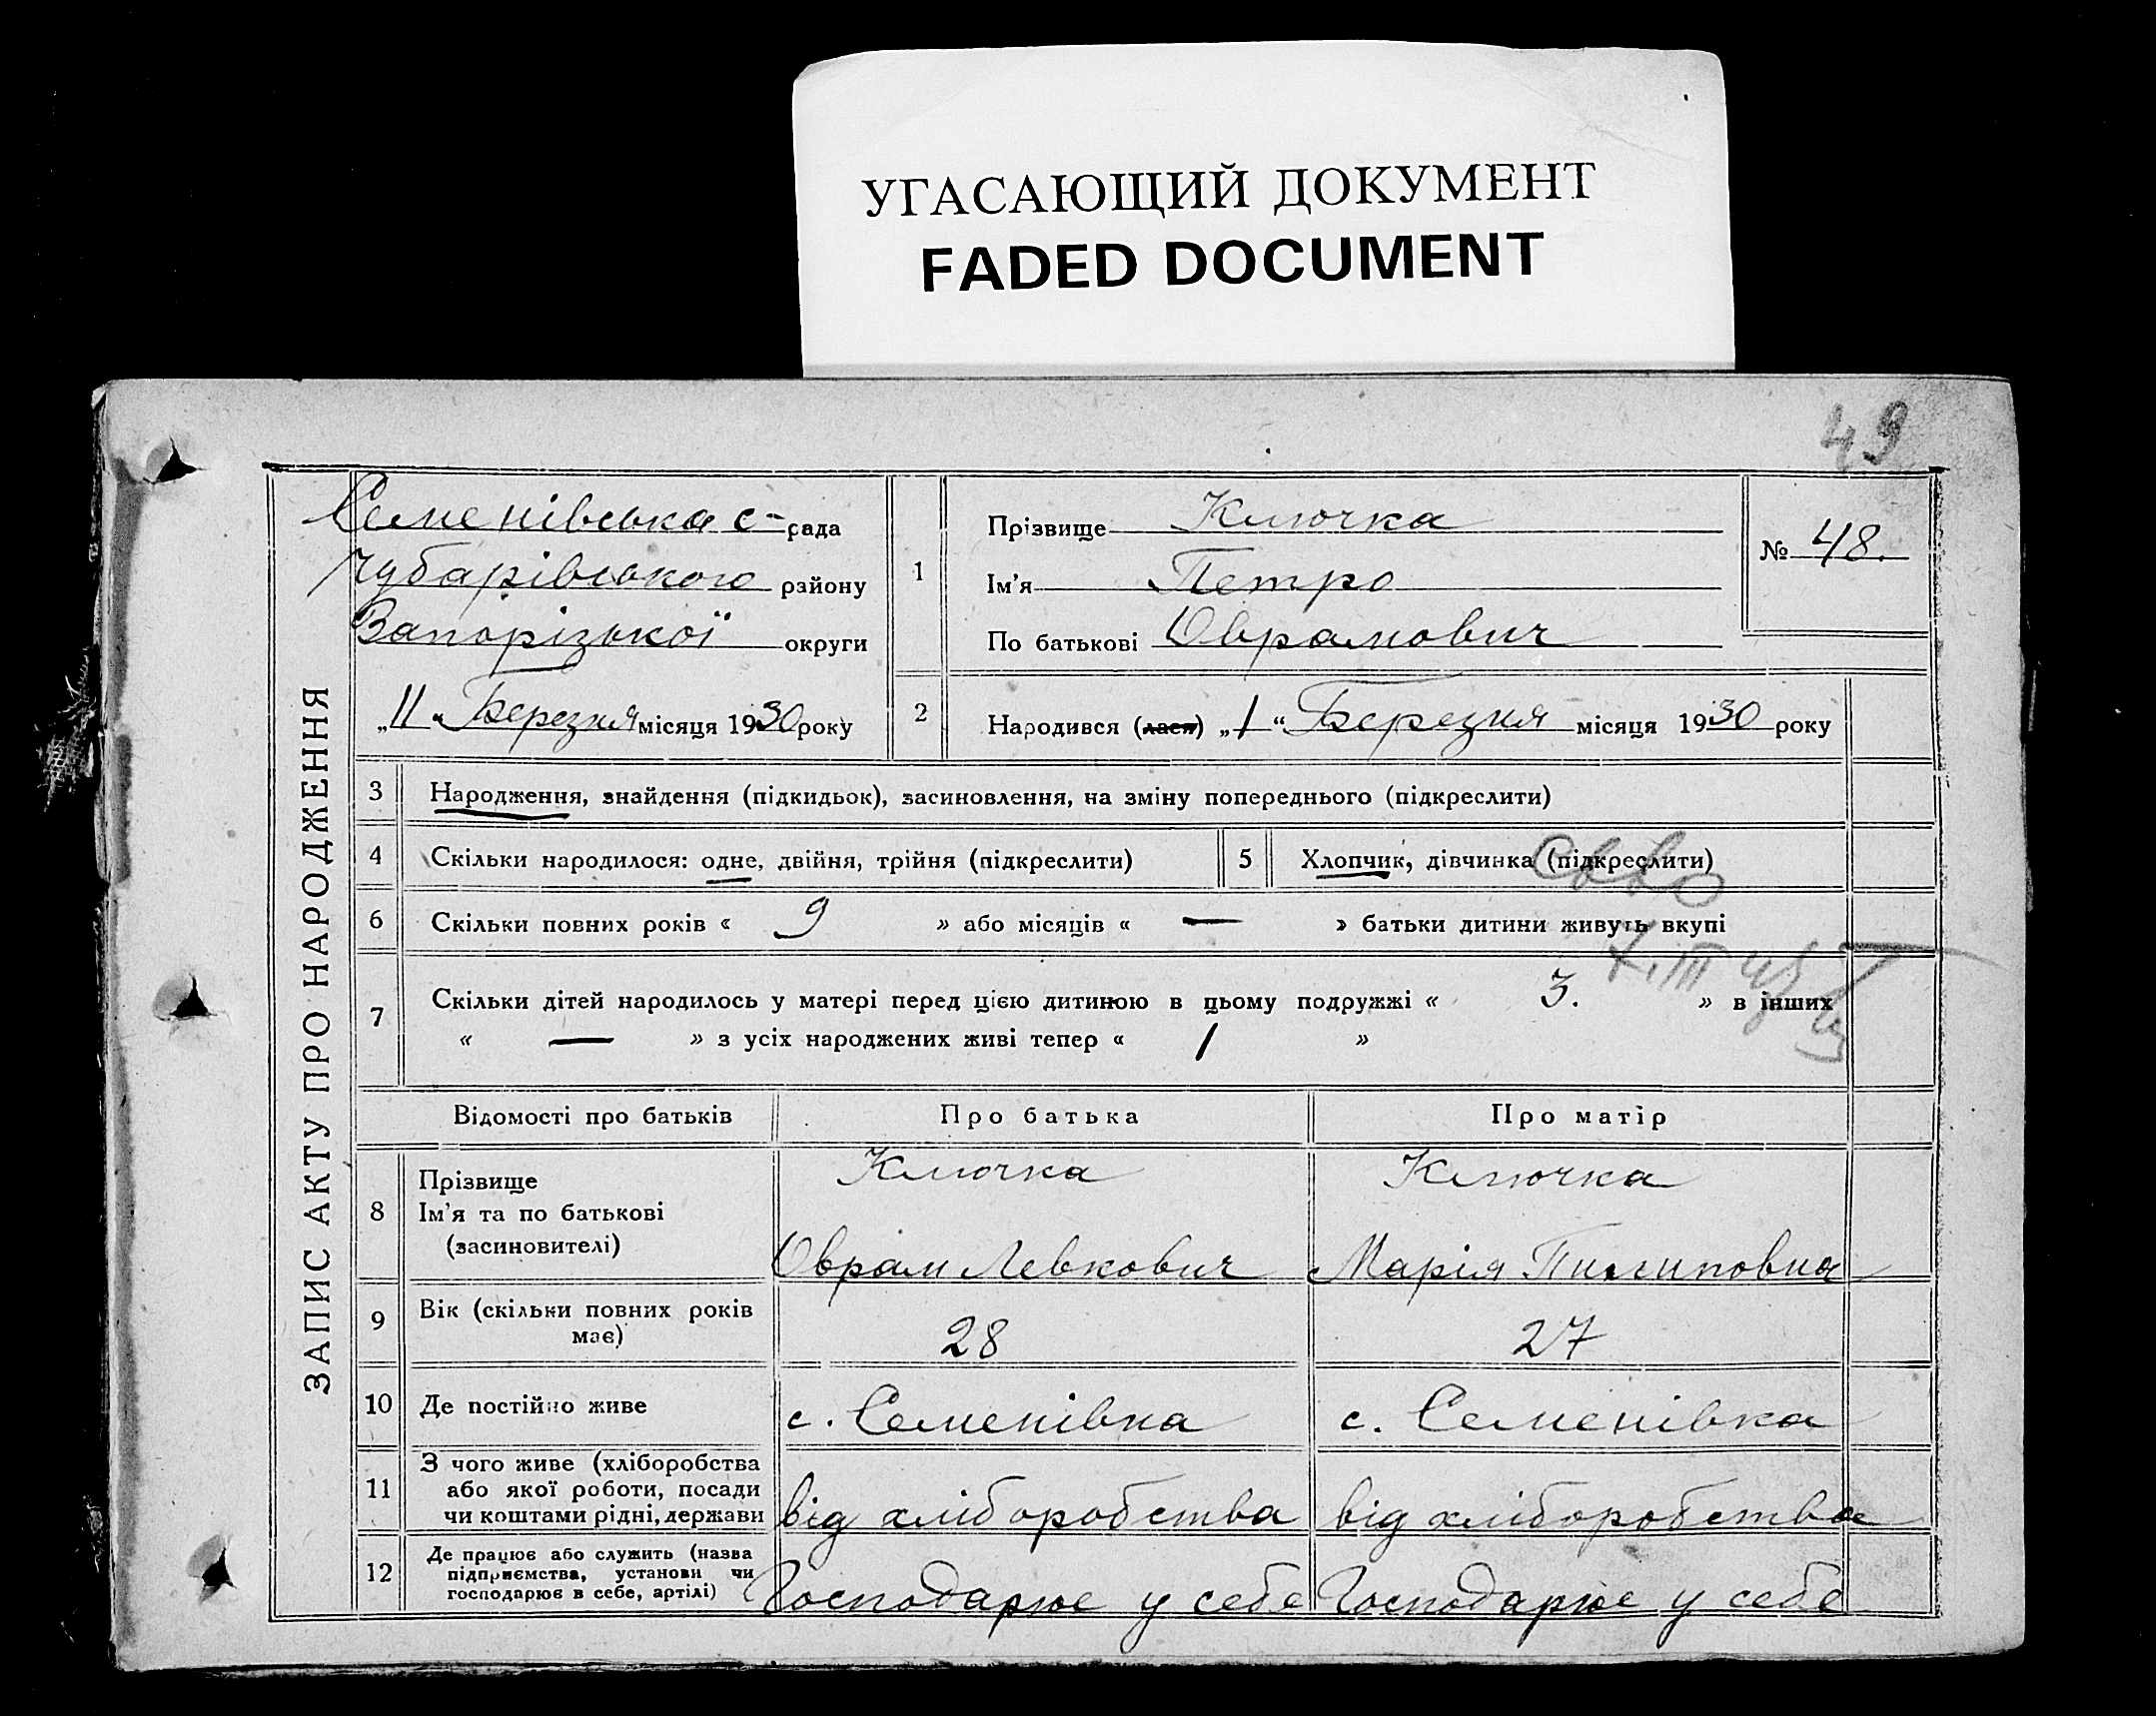 УГАСАЮЩИЙ ДОКУМЕНТ
FADED DOCUMENT
49
ЗАПИС АКТУ ПРО НАРОДЖЕННЯ
Семенівська с-рада
Чубарівського району
Запорізької округи
„11“ Березня місяця 1930 року
1
Прізвище Ключка
Ім'я Петро
По батькові Оврамович
№ 48.
2
Народився (лася) „1“ Березня місяця 1930 року
3 Народження, знайдення (підкидьок), засиновлення, на зміну попереднього (підкреслити)
4 Скільки народилося: одне, двійня, трійня (підкреслити)
5 Хлопчик, дівчинка (підкреслити)
6 Скільки повних років « 9 » або місяців « — » батьки дитини живуть вкупі
7 Скільки дітей народилось у матері перед цією дитиною в цьому подружжі « 3. » в інших
« — » з усіх народжених живі тепер « 1 »
Відомості про батьків Про батька Про матір
8 Прізвище Ключка Ключка
Ім'я та по батькові
(засиновителі) Оврам Левкович Марія Пилиповна
9 Вік (скільки повних років
має) 28 27
10 Де постійно живе с. Семенівка с. Семенівка
11 З чого живе (хліборобства
або якої роботи, посади
чи коштами рідні, держави від хліборобства від хліборобства
12 Де працює або служить (назва
підприємства, установи чи
господарює в себе, артілі) Господарює у себе Господарює у себе